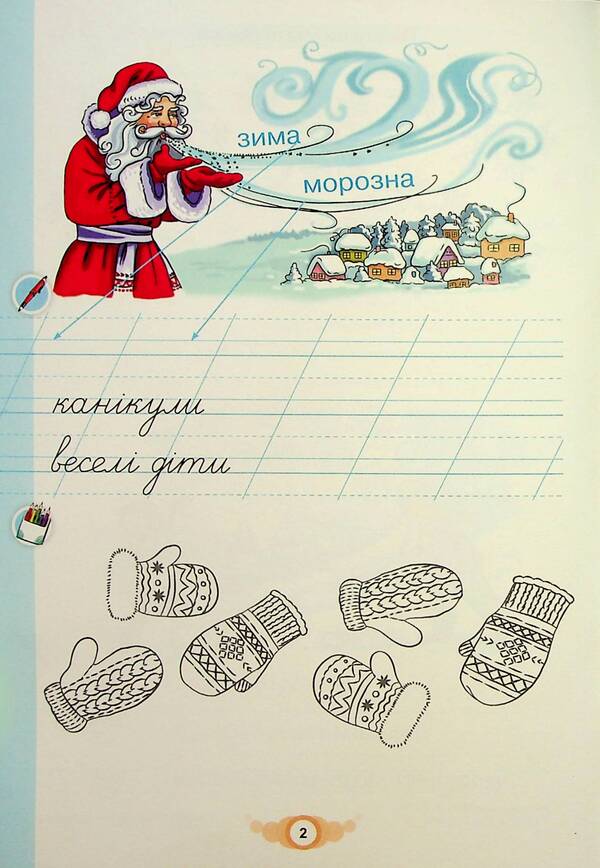 зима
морозна
канікули
веселі діти
2